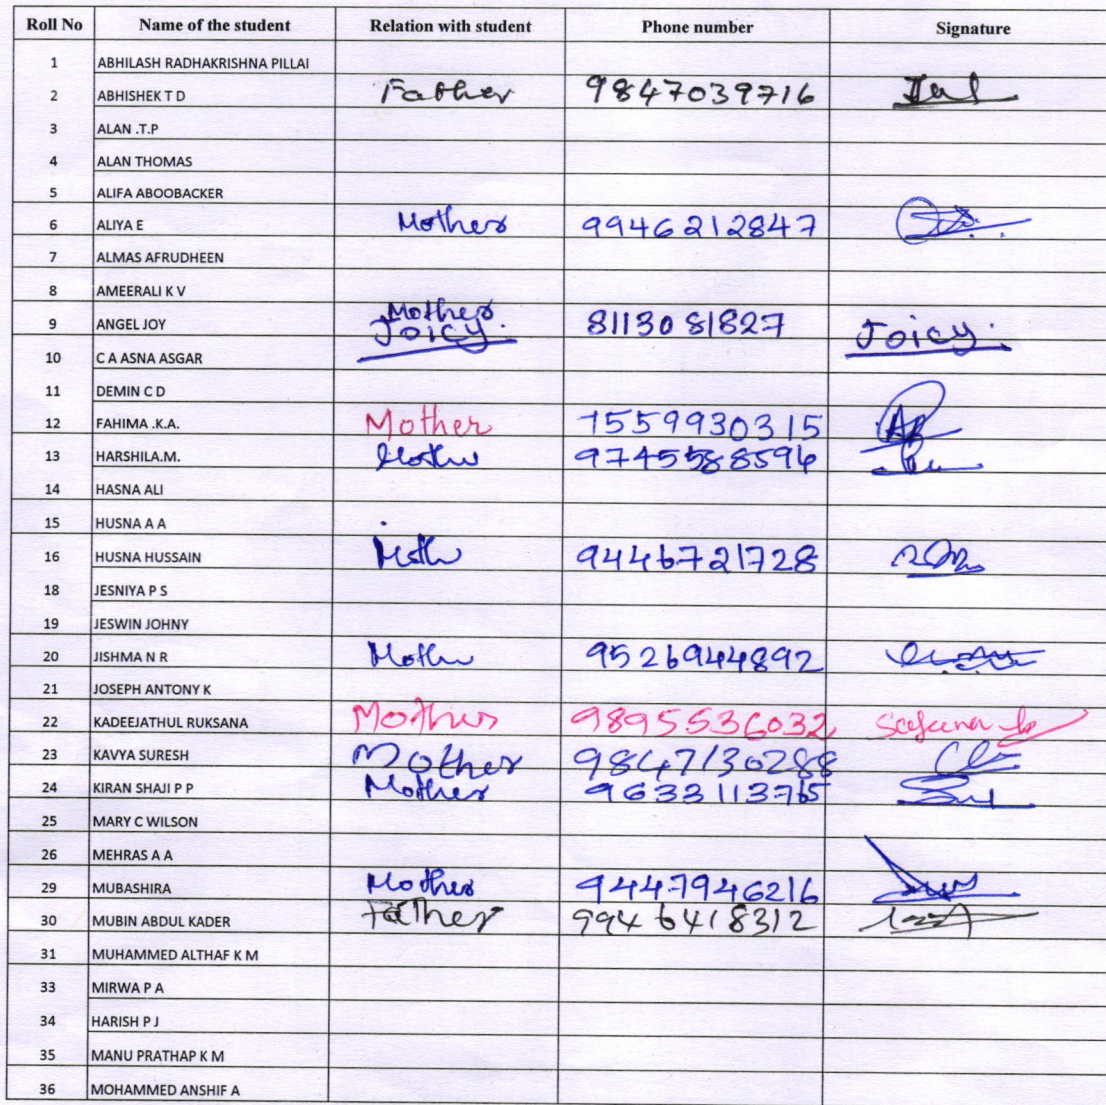 Roll No Name of the student Relation with student Phone number Signature
1 ABHILASH RADHAKRISHNA PILLAI
2 ABHISHEK T D Father 9847039716
3 ALAN .T.P
4 ALAN THOMAS
5 ALIFA ABOOBACKER
6 ALIYA E Mother 9946212847
7 ALMAS AFRUDHEEN
8 AMEERALI K V
9 ANGEL JOY Mother Joicy. 8113081827 Joicy.
10 C A ASNA ASGAR
11 DEMIN C D
12 FAHIMA .K.A. Mother 7559930315
13 HARSHILA.M. Mother
14 HASNA ALI
15 HUSNA A A
16 HUSNA HUSSAIN 9446721728
18 JESNIYA P S
19 JESWIN JOHNY
20 JISHMA N R Mother 9526944892
21 JOSEPH ANTONY K
22 KADEEJATHUL RUKSANA Mother 9895536032
23 KAVYA SURESH Mother 9847130288
24 KIRAN SHAJI P P Mother 9633113765
25 MARY C WILSON
26 MEHRAS A A
29 MUBASHIRA Mother 9447946216
30 MUBIN ABDUL KADER Father 9946418312
31 MUHAMMED ALTHAF K M
33 MIRWA P A
34 HARISH P J
35 MANU PRATHAP K M
36 MOHAMMED ANSHIF A